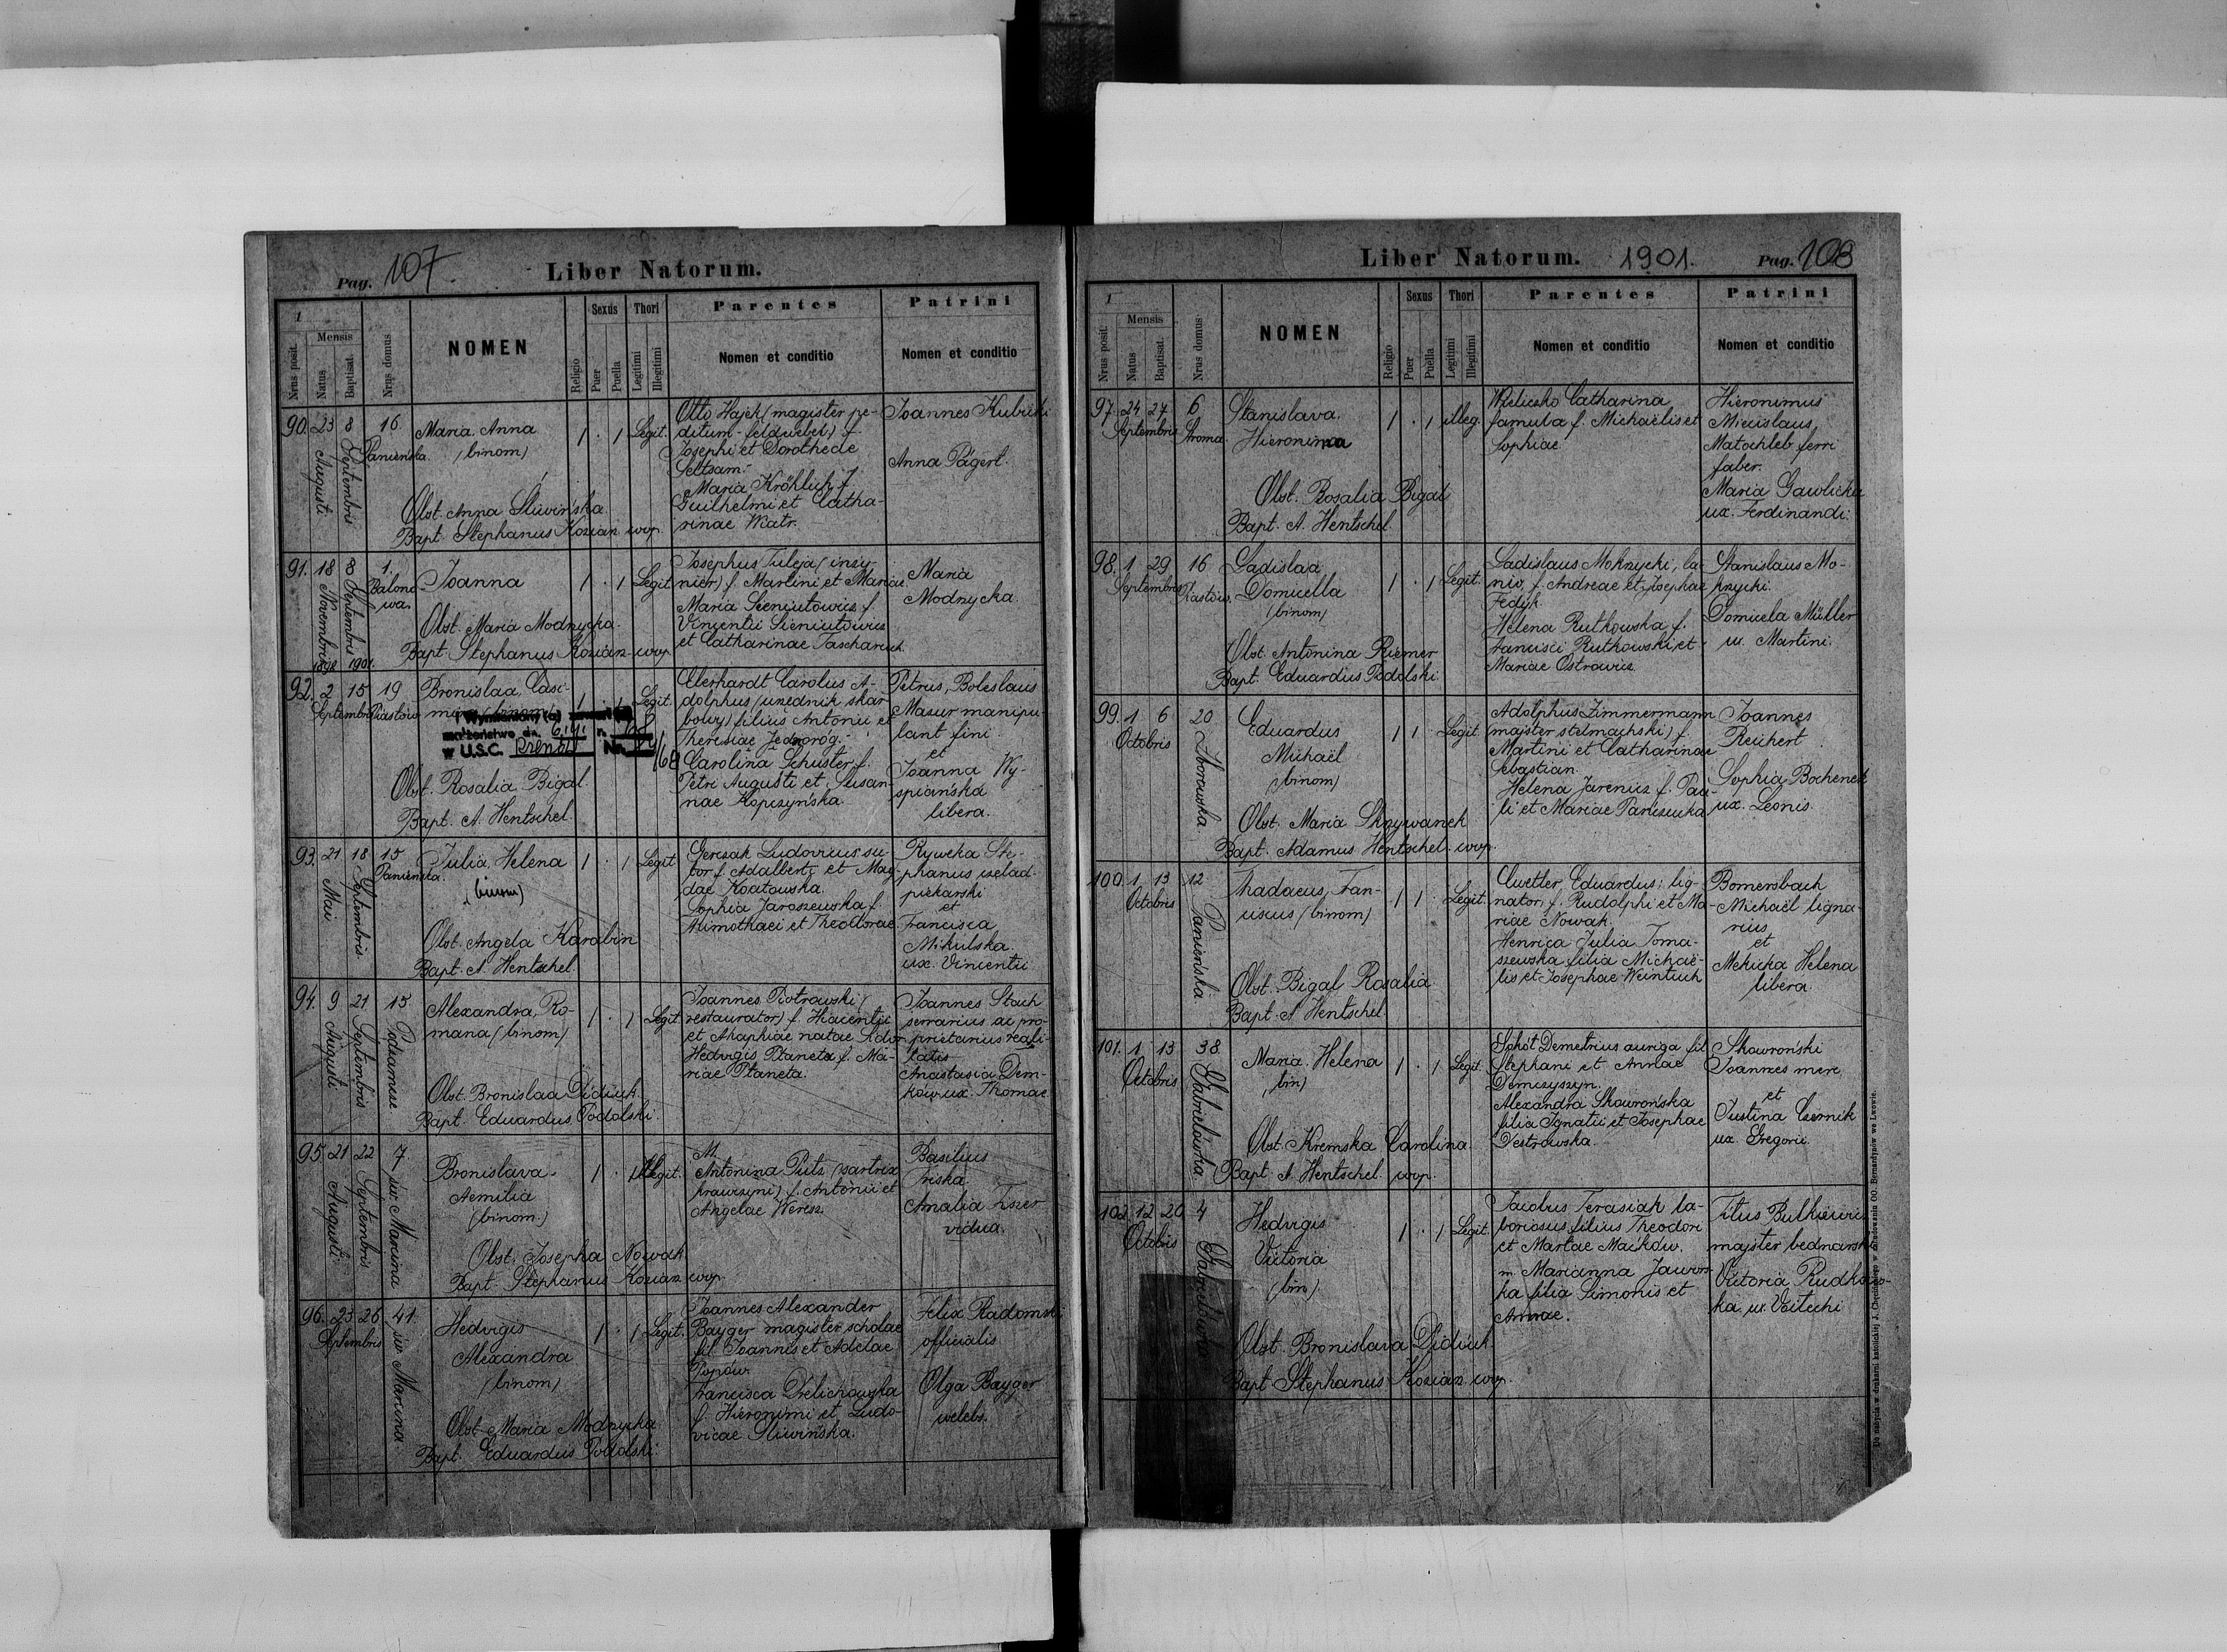 Pag. 107.
Liber Natorum.
1
Nrus posit.
Mensis
Natus
Baptisat.
Nrus domus
NOMEN
Religio
Sexus
Puer
Puella
Thori
Legitimi
Illegitimi
Parentes
Nomen et conditio
Patrini
Nomen et conditio
90. 23 Augusti 8 Septembris 16. Panieńska
Maria Anna
(binom)
Obst. Anna Śliwińska
Bapt. Stephanus Kozian coop.
1 . 1 Legit.
Otto Hajek (magister pe-
ditum - feldwebel) f.
Josephi et Dorotheae
Seltsam.
Maria Kröhlich f.
Guilhelmi et Catha-
rinae Watr.
Joannes Kubicki
Anna Pägert.
91. 18 Novembris 1898 8 Septembris 1901. 1. Balono-
wa.
Joanna
Obst. Maria Modzycka.
Bapt. Stephanus Kozian coop.
1 . 1 Legit.
Josephus Tuleja (inży-
nier) f. Martini et Mariae.
Maria Sieniutowicz f.
Vincentii Sieniutowicz
et Catharinae Tascharuck.
Maria
Modzycka.
92. 2 15 Septembris 19 Piastów
Bronislaa, Casi-
mira (binom)
Wymieniony (a) zawarł (a)
małżeństwo dn.
w U.S.C. Nr.
Obst. Rosalia Bigal.
Bapt. A. Hentschel.
1 . 1 Legit.
Eberhardt Carolus A-
dolphus (urzędnik skar-
bowy) filius Antonii et
Theresiae Jednoróg.-
Carolina Schuster f.
Petri Augusti et Susan-
nae Kopczyńska.
Petrus, Boleslaus
Mazur manipu-
lant fini
et
Joanna Wy-
spiańska
libera.
93. 21 Mai 18 Septembris 15 Panieńska.
Julia, Helena
(binom)
Obst. Angela Karabin
Bapt. A. Hentschel.
1 . 1 Legit
Gerczak Ludovicus su-
tor f. Adalberti et Mag-
dae Koatowska.
Sophia Jaroszewska f.
Timothaei et Theodorae.
Ryweka Ste-
phanus czelad.
piekarski
et
Francisca
Mikulska.
ux. Vincentii
94. 9 Augusti 21 Septembris 15
Alexandra, Ro-
mana (binom)
Obst. Bronislaa Didiuk.
Bapt. Eduardus Podolski.
1 . 1 Legit.
Joannes Piotrowski (
restaurator) f. Hiacentii
et Ahaphiae natae Sidor
Hedvigis Ptaneta f. Ma-
riae Ptaneta.
Joannes Stach
serrarius ac pro-
prietarius reali-
tatis
Anastasia Dem-
ków ux. Thomae
95. 21 Augusti 22 Septembris 7. św. Marcina
Bronislava
Aemilia
(binom.)
Obst. Josepha Nowak
Bapt. Stephanus Kozian coop.
1 . 1 Illegit.
M.
Antonina Putz (sartrix
krawczyni) f. Antonii et
Angelae Weresz.
Basilius
Triska.
Amalia Fiszer
vidua.
96. 23 26 Septembris 41. św. Marcina
Hedvigis
Alexandra
(binom)
Obst. Maria Modzycka
Bapt. Eduardus Podolski.
1 . 1 Legit.
Joannes Alexander
Bayger magister scholae
fil. Joannis et Adelae
Popów.
Francisca Drelichowska
f. Hieronimi et Ludo-
vicae Śliwińska.
Felix Radomski
officialis
Olga Bayger
coelebs.
Liber Natorum. 1901. Pag. 108
1
Nrus posit.
Mensis
Natus
Baptisat.
Nrus domus
NOMEN
Religio
Sexus
Puer
Puella
Thori
Legitimi
Illegitimi
Parentes
Nomen et conditio
Patrini
Nomen et conditio
97. 24 27 Septembris 6 Stroma
Stanislava.
Hieronima
Obst. Rosalia Bigal
Bapt. A. Hentschel.
1 . 1 illeg.
Wieliczko Catharina
famula f. Michaëlis et
Sophiae
Hieronimus
Miecislaus
Matochleb ferri
faber.
Maria Gawlicka
ux. Ferdinandi.
98. 1 29 Septembris 16 Piastów.
Ladislaa
Domicella
(binom)
Obst. Antonina Riemer
Bapt. Eduardus Podolski.
1 . 1 Legit.
Ladislaus Mokrzycki, la-
nio, f. Andreae et Josephae
Fedyk.
Helena Rutkowska f.
Francisci Rutkowski et
Mariae Ostrowicz.
Stanislaus Mo-
krzycki.
Domicela Müller
ux. Martini.
99. 1 6 Octobris 20 Zborowska
Eduardus
Michaël
(binom)
Obst. Maria Skrzywanek
Bapt. Adamus Hentschel. coop.
1 1 . Legit.
Adolphus Zimmermann
(majster stelmachski) f.
Martini et Catharinae
Sebastian.
Helena Jarenicz f. Pau-
li et Mariae Paniczucka
Joannes
Reichert
Sophia Bochenek
ux. Leonis.
100. 1 13 Octobris 12 Panieńska
Thadaeus, Fran-
ciscus (binom)
Obst. Bigal Rosalia
Bapt. A. Hentschel
1 1 . Legit.
Cwetler, Eduardus: lig-
nator, f. Rudolphi et Ma-
riae Nowak.
Henrica Julia Toma-
szewska filia Michaë-
lis et Josephae Weintuch
Bomersbach
Michaël ligna-
rius
et
Mekicka Helena
libera.
101. 1. 13 Octobris 38. Gabrielówka
Maria Helena
(bin)
Obst. Kremska Carolina.
Bapt. A. Hentschel. coop.
1 . 1 Legit.
Schöt Demetrius auriga fil
Stephani et Annae
Demczyszyn.
Alexandra Skowrońska
filia Ignatii et Josephae
Destrowska.
Skowroński
Joannes merc
et
Justina Czernik
ux. Gregorii.
102. 12 20 Octobris 4 Gabrielówka
Hedvigis
Victoria
(bin).
Obst. Bronislava Didiuk.
Bapt. Stephanus Kozian coop.
1 . 1 Legit.
Jacobus Terasiak la-
boriosus filius Theodori
et Martae Maćków.
m. Marianna Jawor-
ka filia Simonis et
Annae.
Titus Bulkiewicz
majster bednarski
Victoria Rudkow-
ka ux. Voitechi
Do nabycia w drukarni katolickiej J. Chęcińskiego w zabudowaniu OO. Bernardynów we Lwowie.